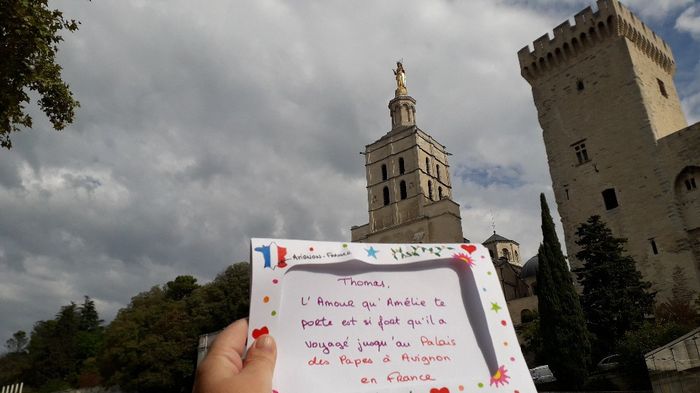 Avignon - France
Thomas,
L'Amour qu'Amélie te
porte est si fort qu'il a
voyagé jusqu'au Palais
des Papes à Avignon
en France